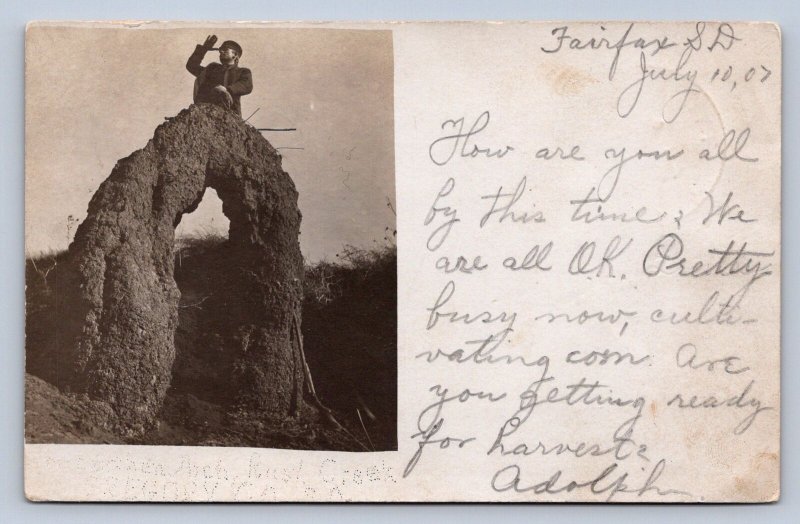 Fairfax S D
July 10, 07
How are you all
by this time? We
are all O.K. Pretty
busy now, culti-
vating corn. Are
you getting ready
for harvest?
Adolph.
Arch, Creek